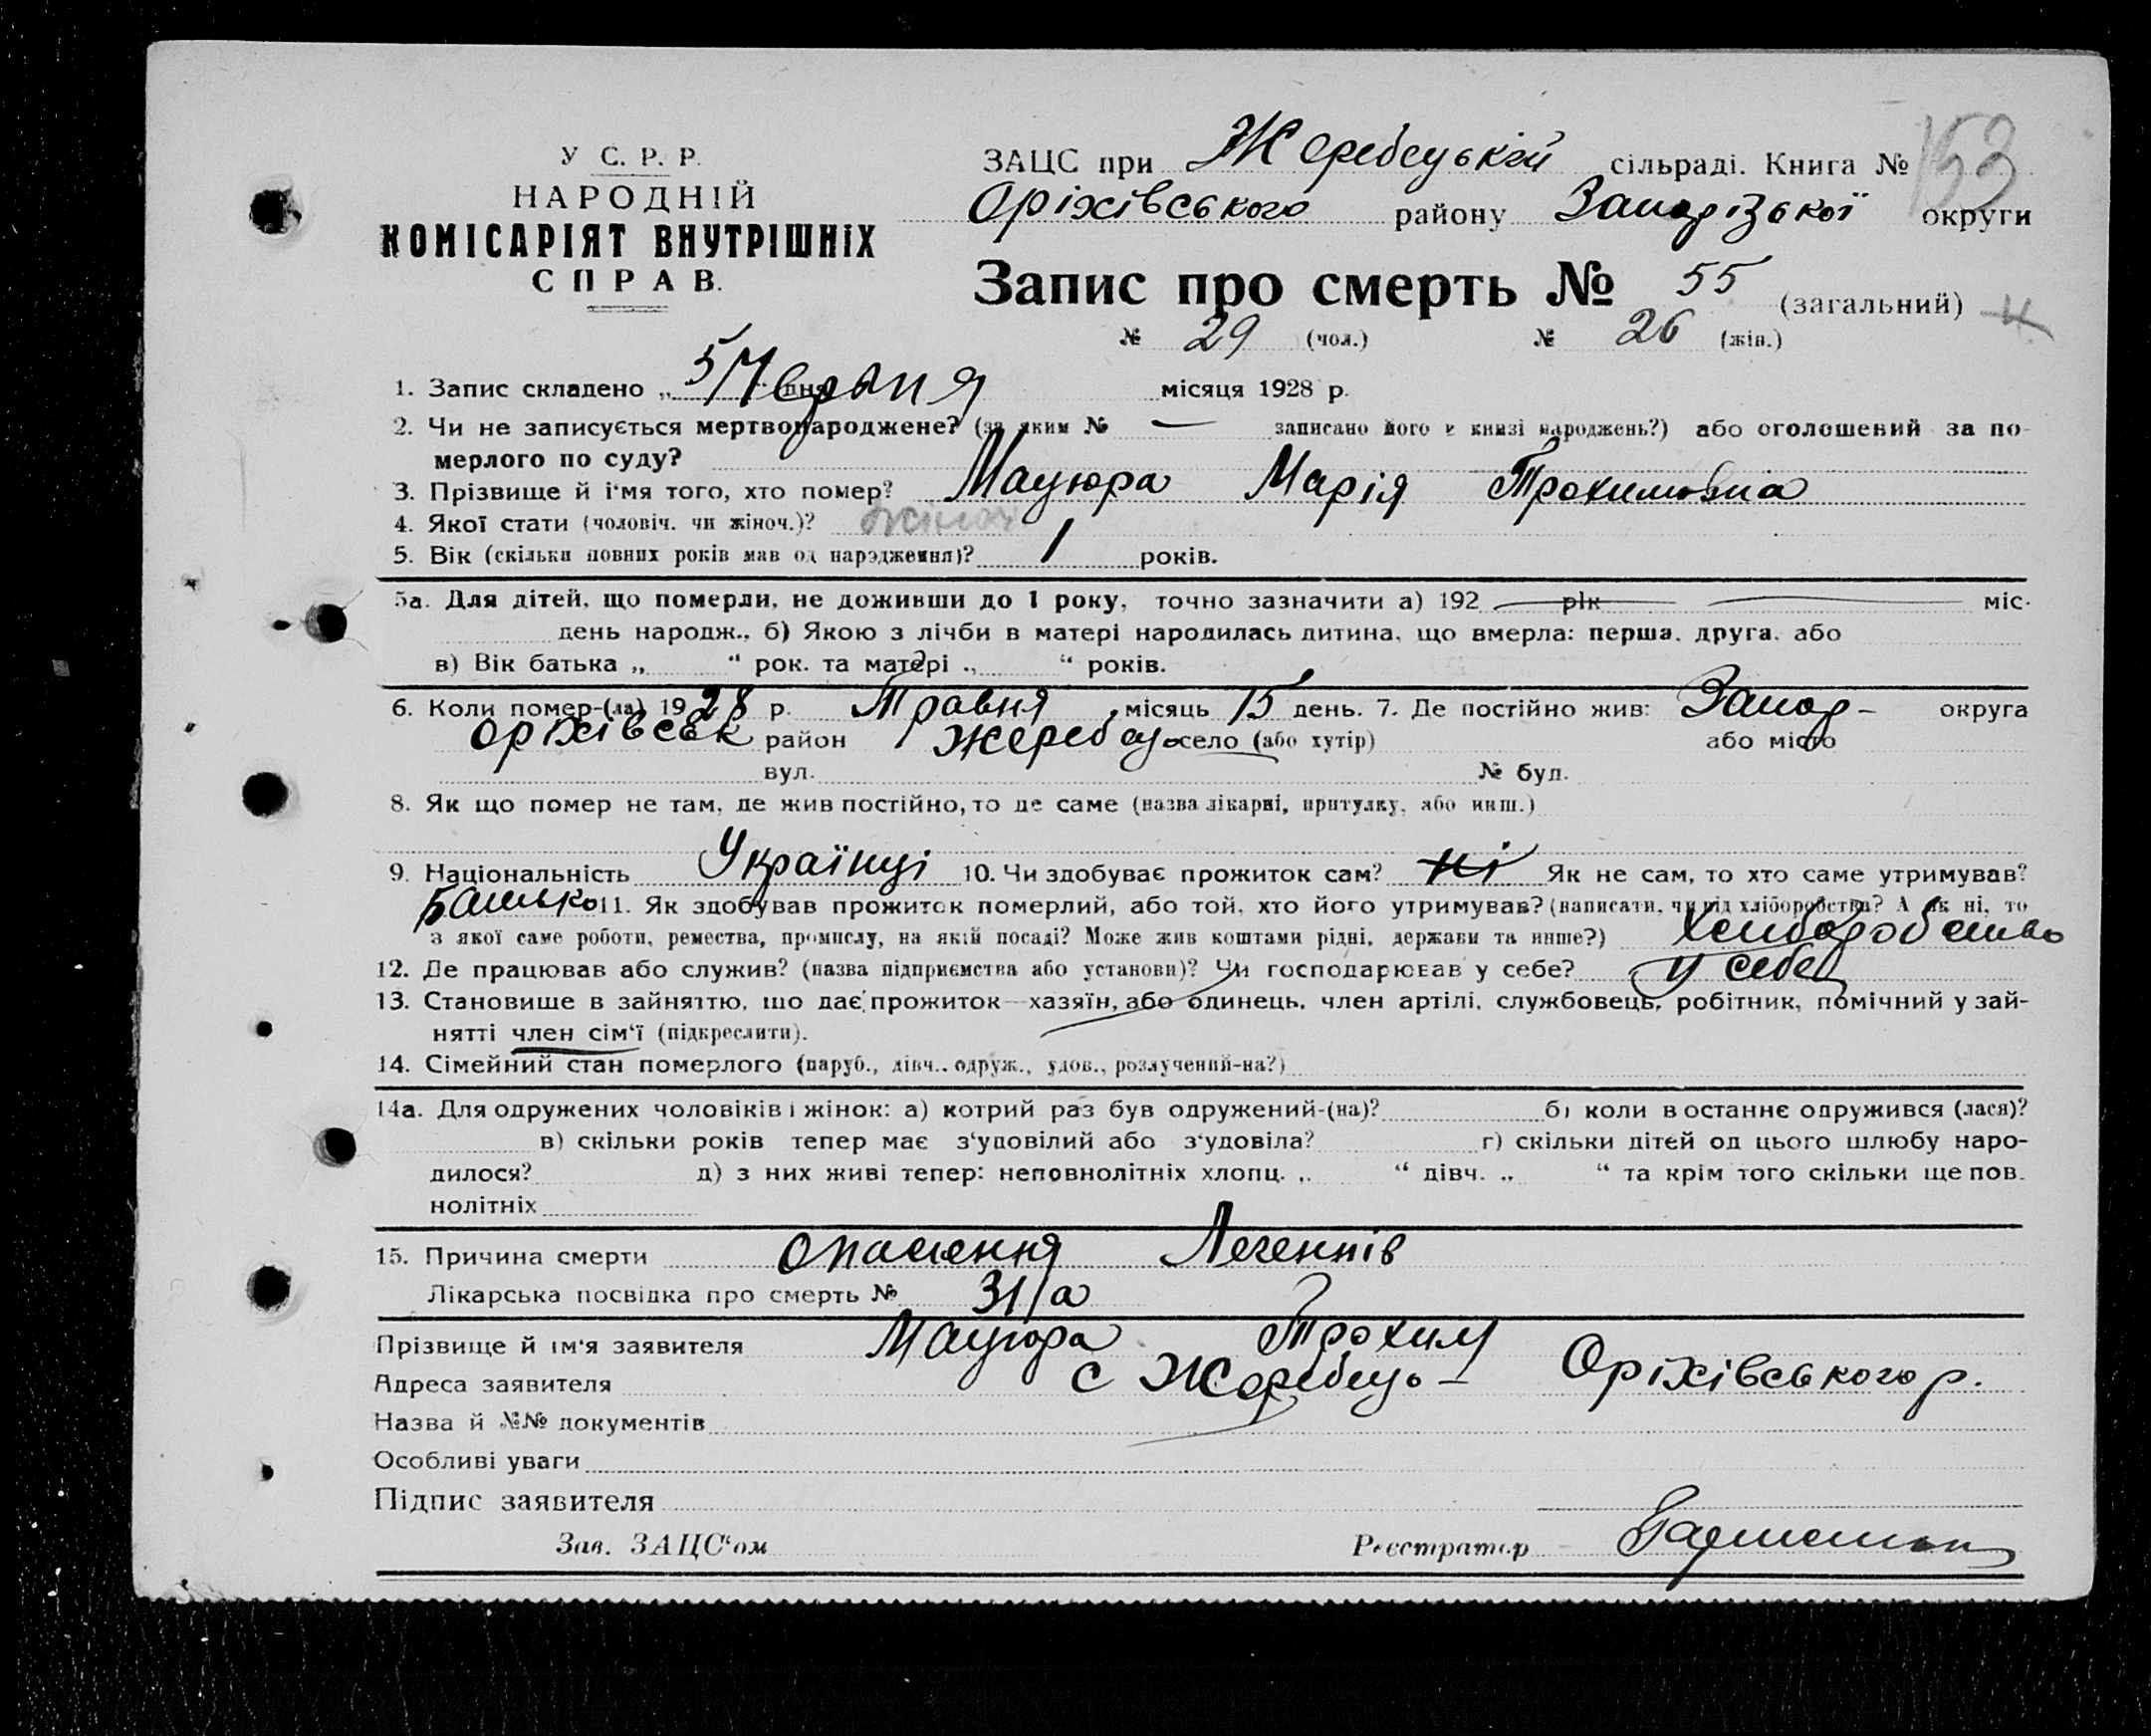 У С. Р. Р.
НАРОДНІЙ
КОМІСАРІЯТ ВНУТРІШНІХ
СПРАВ.
ЗАЦС при Жеребецькій сільраді. Книга № 153
Оріхівського району Запорізької округи
Запис про смерть № 55 (загальний)
№ 29 (чол.) № 26 (жін.)
1. Запис складено „ 5 “ дня Червня місяця 1928 р.
2. Чи не записується мертвонароджене? (за яким № — записано його в книзі народжень?) або оголошений за по-
мерлого по суду?
3. Прізвище й ім'я того, хто помер? Мацюра Марія Трохимовна
4. Якої стати (чоловіч. чи жіноч.)? жіноч
5. Вік (скільки повних років мав од народження)? 1 років.
5а. Для дітей, що померли, не доживши до 1 року, точно зазначити а) 192 — рік — міс.
день народж., б) Якою з лічби в матері народилась дитина, що вмерла: перша, друга, або
в) Вік батька „ “ рок. та матері „ “ років.
6. Коли помер-(ла) 1928 р. Травня місяць 15 день. 7. Де постійно жив: Запор- округа
Оріхівськ район Жеребець село (або хутір) або місто
вул. № буд.
8. Як що помер не там, де жив постійно, то де саме (назва лікарні, притулку, або инш.)
9. Національність Українці 10. Чи здобуває прожиток сам? ні Як не сам, то хто саме утримував?
Батько 11. Як здобував прожиток померлий, або той, хто його утримував? (написати, чи від хліборобства? А як ні, то
з якої саме роботи, ремества, промислу, на якій посаді? Може жив коштами рідні, держави та инше?) Хлиборобство
12. Де працював або служив? (назва підприємства або установи)? Чи господарював у себе? у себе
13. Становище в зайняттю, що дає прожиток—хазяїн, або одинець, член артілі, службовець, робітник, помічний у зай-
нятті член сім'ї (підкреслити).
14. Сімейний стан померлого (паруб., дівч., одруж., удов., розлучений-на?)
14а. Для одружених чоловіків і жінок: а) котрий раз був одружений-(на)? б) коли в останнє одружився (лася)?
в) скільки років тепер має з'удовілий або з'удовіла? г) скільки дітей од цього шлюбу наро-
дилося? д) з них живі тепер: неповнолітніх хлопц. „ “ дівч. „ “ та крім того скільки ще пов.
нолітніх
15. Причина смерти опалення Легеннів
Лікарська посвідка про смерть № 31/а
Прізвище й ім'я заявителя Мацюра Трохим
Адреса заявителя с Жеребець – Оріхівського р.
Назва й №№ документів
Особливі уваги
Підпис заявителя
Зав. ЗАЦС'ом Реєстратор